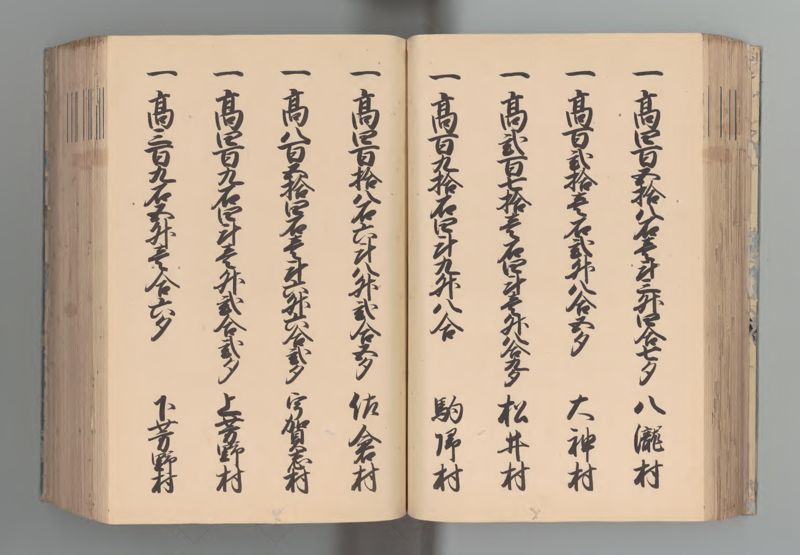 一 高四百五拾八石壱斗三升四合七夕 八瀧村
一 高百弐拾壱石弐升八合五夕 大神村
一 高弐百七拾壱石四斗壱升八合九夕 松井村
一 高百九拾石四斗九升八合 駒帰村
一 高四百拾八石六斗八升弐合五夕 佐倉村
一 高八百五拾四石壱斗六升六合弐夕 宇賀志村
一 高四百九石四斗壱升弐合弐夕 上芳野村
一 高三百九石五升壱合六夕 下芳野村